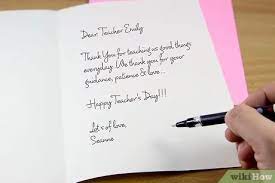 Dear Teacher Emily
Thank You for teaching us good things
everyday. We thank you for your
guidance, patience & love...
Happy Teacher's Day!!!
Lots of love,
Seanne
wikiHow